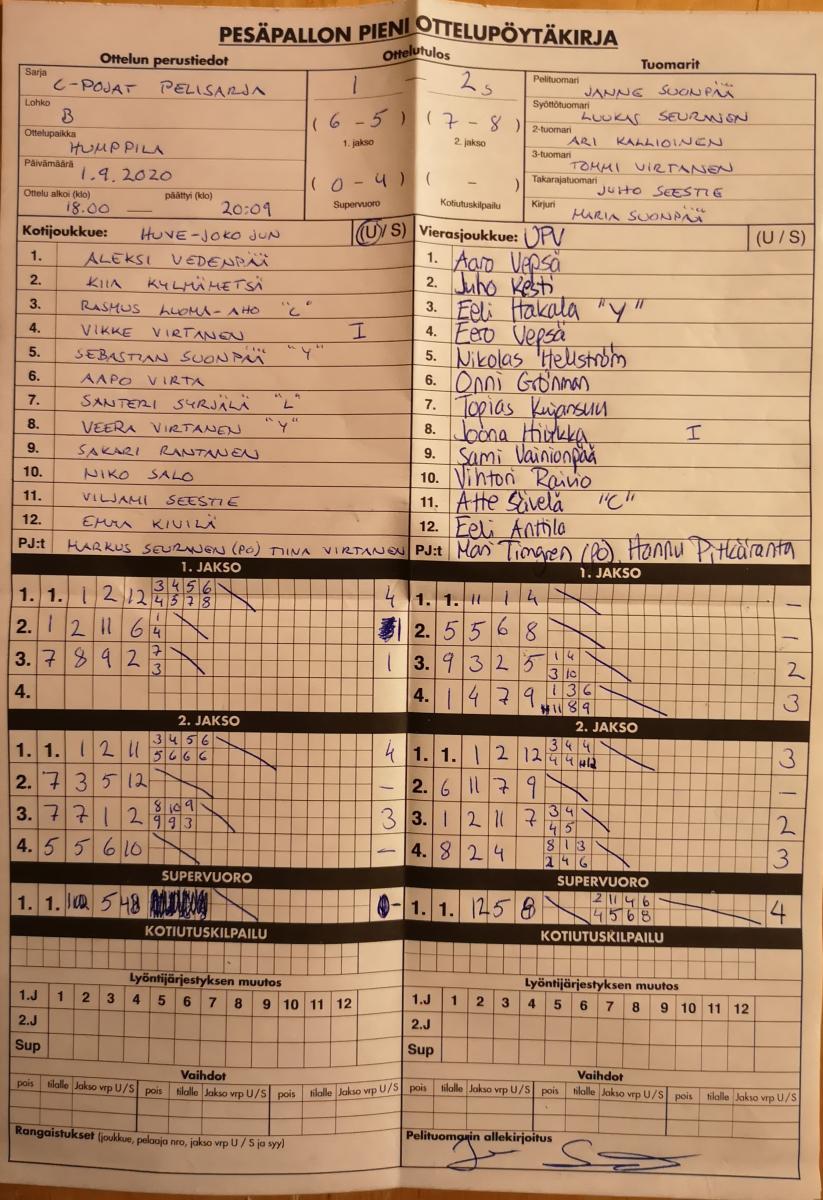 PESÄPALLON PIENI OTTELUPÖYTÄKIRJA
Ottelun perustiedot Ottelutulos Tuomarit
Sarja C-POJAT PELISARJA
Lohko B
Ottelupaikka HUMPPILA
Päivämäärä 1.9.2020
Ottelu alkoi (klo) päättyi (klo)
18.00 — 20:09
1 — 2s
(6 - 5) (7 - 8)
1. jakso 2. jakso
(0 - 4) ( - )
Supervuoro Kotiutuskilpailu
Pelituomari JANNE SUONPÄÄ
Syöttötuomari LUUKAS SEURANEN
2-tuomari ARI KALLIOINEN
3-tuomari TOMMI VIRTANEN
Takarajatuomari JUHO SEESTIE
Kirjuri MARIA SUONPÄÄ
Kotijoukkue: HUVE-JOKO JUN (U/S)
1. ALEKSI VEDENPÄÄ
2. KIIA KYLMÄMETSÄ
3. RASMUS LUOMA-AHO "C"
4. VIKKE VIRTANEN I
5. SEBASTIAN SUONPÄÄ "Y"
6. AAPO VIRTA
7. SANTERI SYRJÄLÄ "L"
8. VEERA VIRTANEN "Y"
9. SAKARI RANTANEN
10. NIKO SALO
11. VILJAMI SEESTIE
12. EMMA KIVILÄ
PJ:t MARKUS SEURANEN (PO) TIINA VIRTANEN
Vierasjoukkue: UPV (U / S)
1. Aaro Vepsä
2. Juho Kesti
3. Eeli Hakala "Y"
4. Eero Vepsä
5. Nikolas Hellström
6. Onni Grönman
7. Topias Kujansuu
8. Joona Hiukka I
9. Sami Vainionpää
10. Vihtori Raivio
11. Atte Säivelä "C"
12. Eeli Anttila
PJ:t Mari Timgren (PO), Hannu Pitkäranta
1. JAKSO
1. 1. 1 2 12 3 4 5 6 4
4 5 7 8
2. 1 2 11 6 1 1
4
3. 7 8 9 2 7 1
3
4.
2. JAKSO
1. 1. 1 2 11 3 4 5 6 4
5 6 6 6
2. 7 3 5 12 –
3. 7 7 1 2 8 10 9 3
9 9 3
4. 5 5 6 10 –
SUPERVUORO
1. 1. 5 48 –
KOTIUTUSKILPAILU
Lyöntijärjestyksen muutos
1.J 1 2 3 4 5 6 7 8 9 10 11 12
2.J
Sup
Vaihdot
pois tilalle Jakso vrp U/S pois tilalle Jakso vrp U/S pois tilalle Jakso vrp U/S
Rangaistukset (joukkue, pelaaja nro, jakso vrp U / S ja syy)
1. JAKSO
1. 1. 11 1 4 –
2. 5 5 6 8 –
3. 9 3 2 5 1 4 2
3 10
4. 1 4 7 9 1 3 6 3
11 8 9
2. JAKSO
1. 1. 1 2 12 3 4 4 3
4 4 12
2. 6 11 7 9 –
3. 1 2 11 7 3 4 2
4 5
4. 8 2 4 8 1 3 3
2 4 6
SUPERVUORO
1. 1. 12 5 8 2 11 4 6 4
4 5 6 8
KOTIUTUSKILPAILU
Lyöntijärjestyksen muutos
1.J 1 2 3 4 5 6 7 8 9 10 11 12
2.J
Sup
Vaihdot
pois tilalle Jakso vrp U/S pois tilalle Jakso vrp U/S pois tilalle Jakso vrp U/S
Pelituomarin allekirjoitus